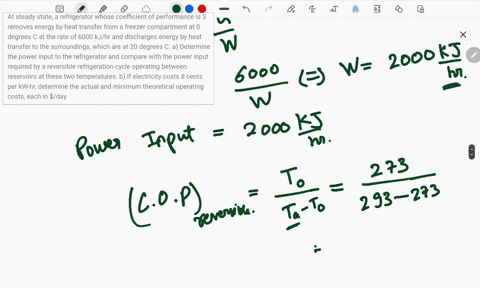 At steady state, a refrigerator whose coefficient of performance is 3
removes energy by heat transfer from a freezer compartment at 0
degrees C at the rate of 6000 kJ/hr and discharges energy by heat
transfer to the surroundings, which are at 20 degrees C. a) Determine
the power input to the refrigerator and compare with the power input
required by a reversible refrigeration cycle operating between
reservoirs at these two temperatures. b) If electricity costs 8 cents
per kW-hr, determine the actual and minimum theoretical operating
costs, each in $/day
W
6000 / W (=) W = 2000 KJ/hr.
Power Input = 2000 KJ/hr.
(C.O.P) reversible. = To / Ta - To = 273 / 293 - 273